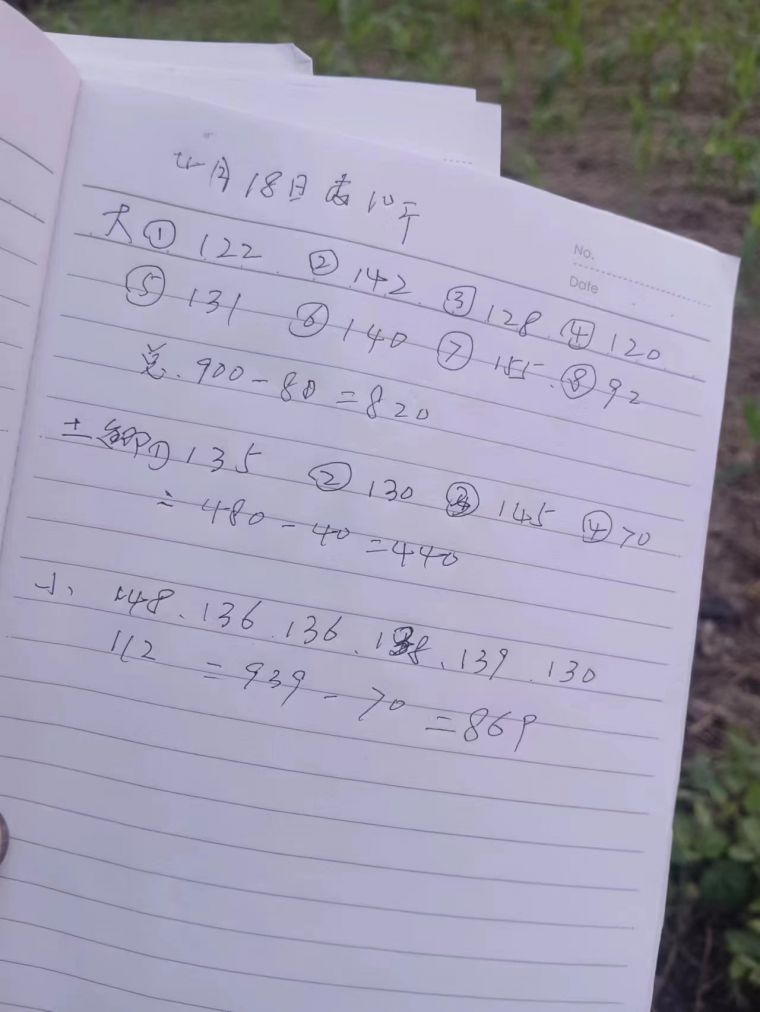 4月18日 10千
No.
Date
大 ① 122 ② 142 ③ 128 ④ 120
⑤ 131 ⑥ 140 ⑦ 155 ⑧ 92
900-80=820
① 135 ② 130 ③ 145 ④ 70
=480-40=440
小 148.136.136.138.139.130
112 =939-70=869